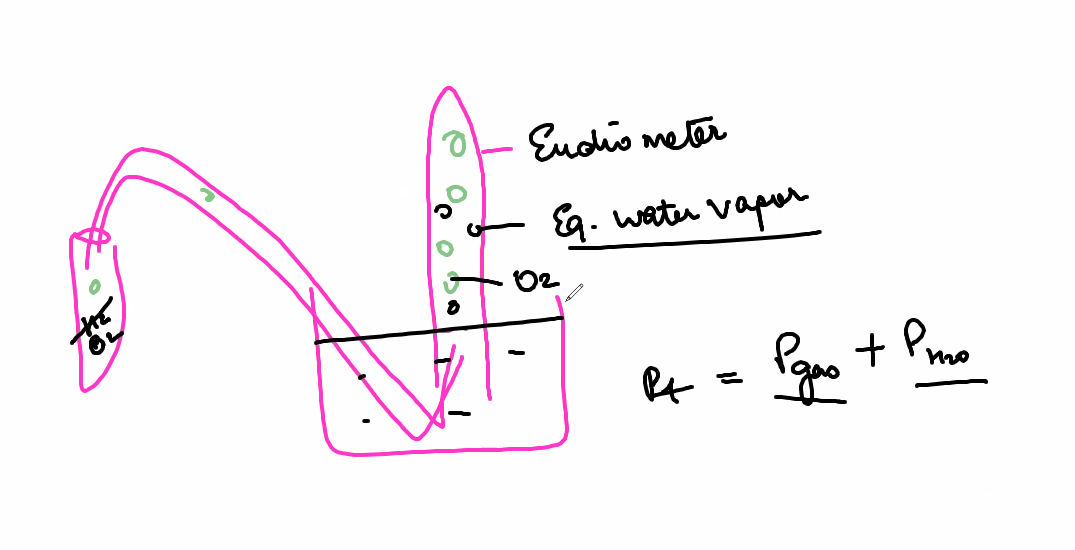 Eudiometer
Eq. water vapor
O2
H2
O2
Pt = Pgas + PH2O